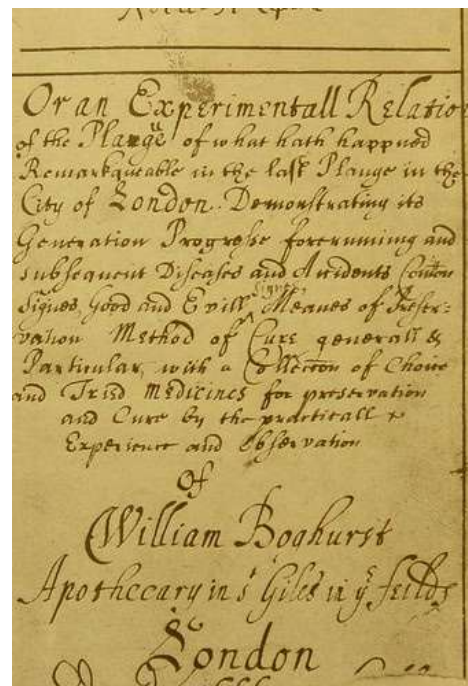 Or an Experimentall Relatio
of the Plauge of what hath happned
Remarkqueable in the last Plauge in the
City of London. Demonstrating its
Generation Progresse forerunning and
subsequent Diseases and Accidents Com̃on
Signes, Good and Evill Signes, Meanes of Preser-
vation Method of Cure generall &
Particular, with a Collection of Choice
and Tried Medicines for preservation
and Cure by the practicall
Experience and Observation
Of
William Boghurst
Apothecary in st Giles in ye feilds
London